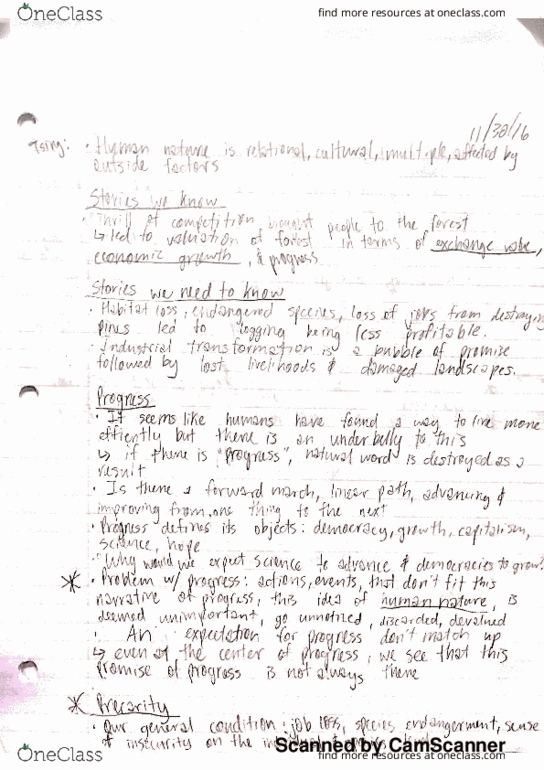 OneClass
find more resources at oneclass.com
11/30/16
Tsing: • Human nature is relational, cultural, multiple, affected by
outside factors
Stories we know
• Thrill of competition brought people to the forest
↳ led to valuation of forest in terms of exchange value,
economic growth, & progress
Stories we need to know
• Habitat loss, endangered species, loss of jobs from destroying
pines led to logging being less profitable.
• Industrial transformation is a bubble of promise
followed by lost livelihoods & damaged landscapes.
Progress
• It seems like humans have found a way to live more
efficently but there is an underbelly to this
↳ if there is "progress", natural word is destroyed as a
result
• Is there a forward march, linear path, advancing &
improving from one thing to the next
• Progress defines its objects: democracy, growth, capitalism,
science, hope
"Why would we expect science to advance & democracies to grow?
* • Problem w/ progress: actions, events, that don't fit this
narrative of progress, this idea of human nature, is
deemed unimportant, go unnoticed, discarded, devalued
• An expectation for progress don't match up
↳ even at the center of progress, we see that this
promise of progress is not always there
* Precarity
• Our general condition: job loss, species endangerment, sense
of insecurity on the
Scanned by CamScanner
OneClass
find more resources at oneclass.com